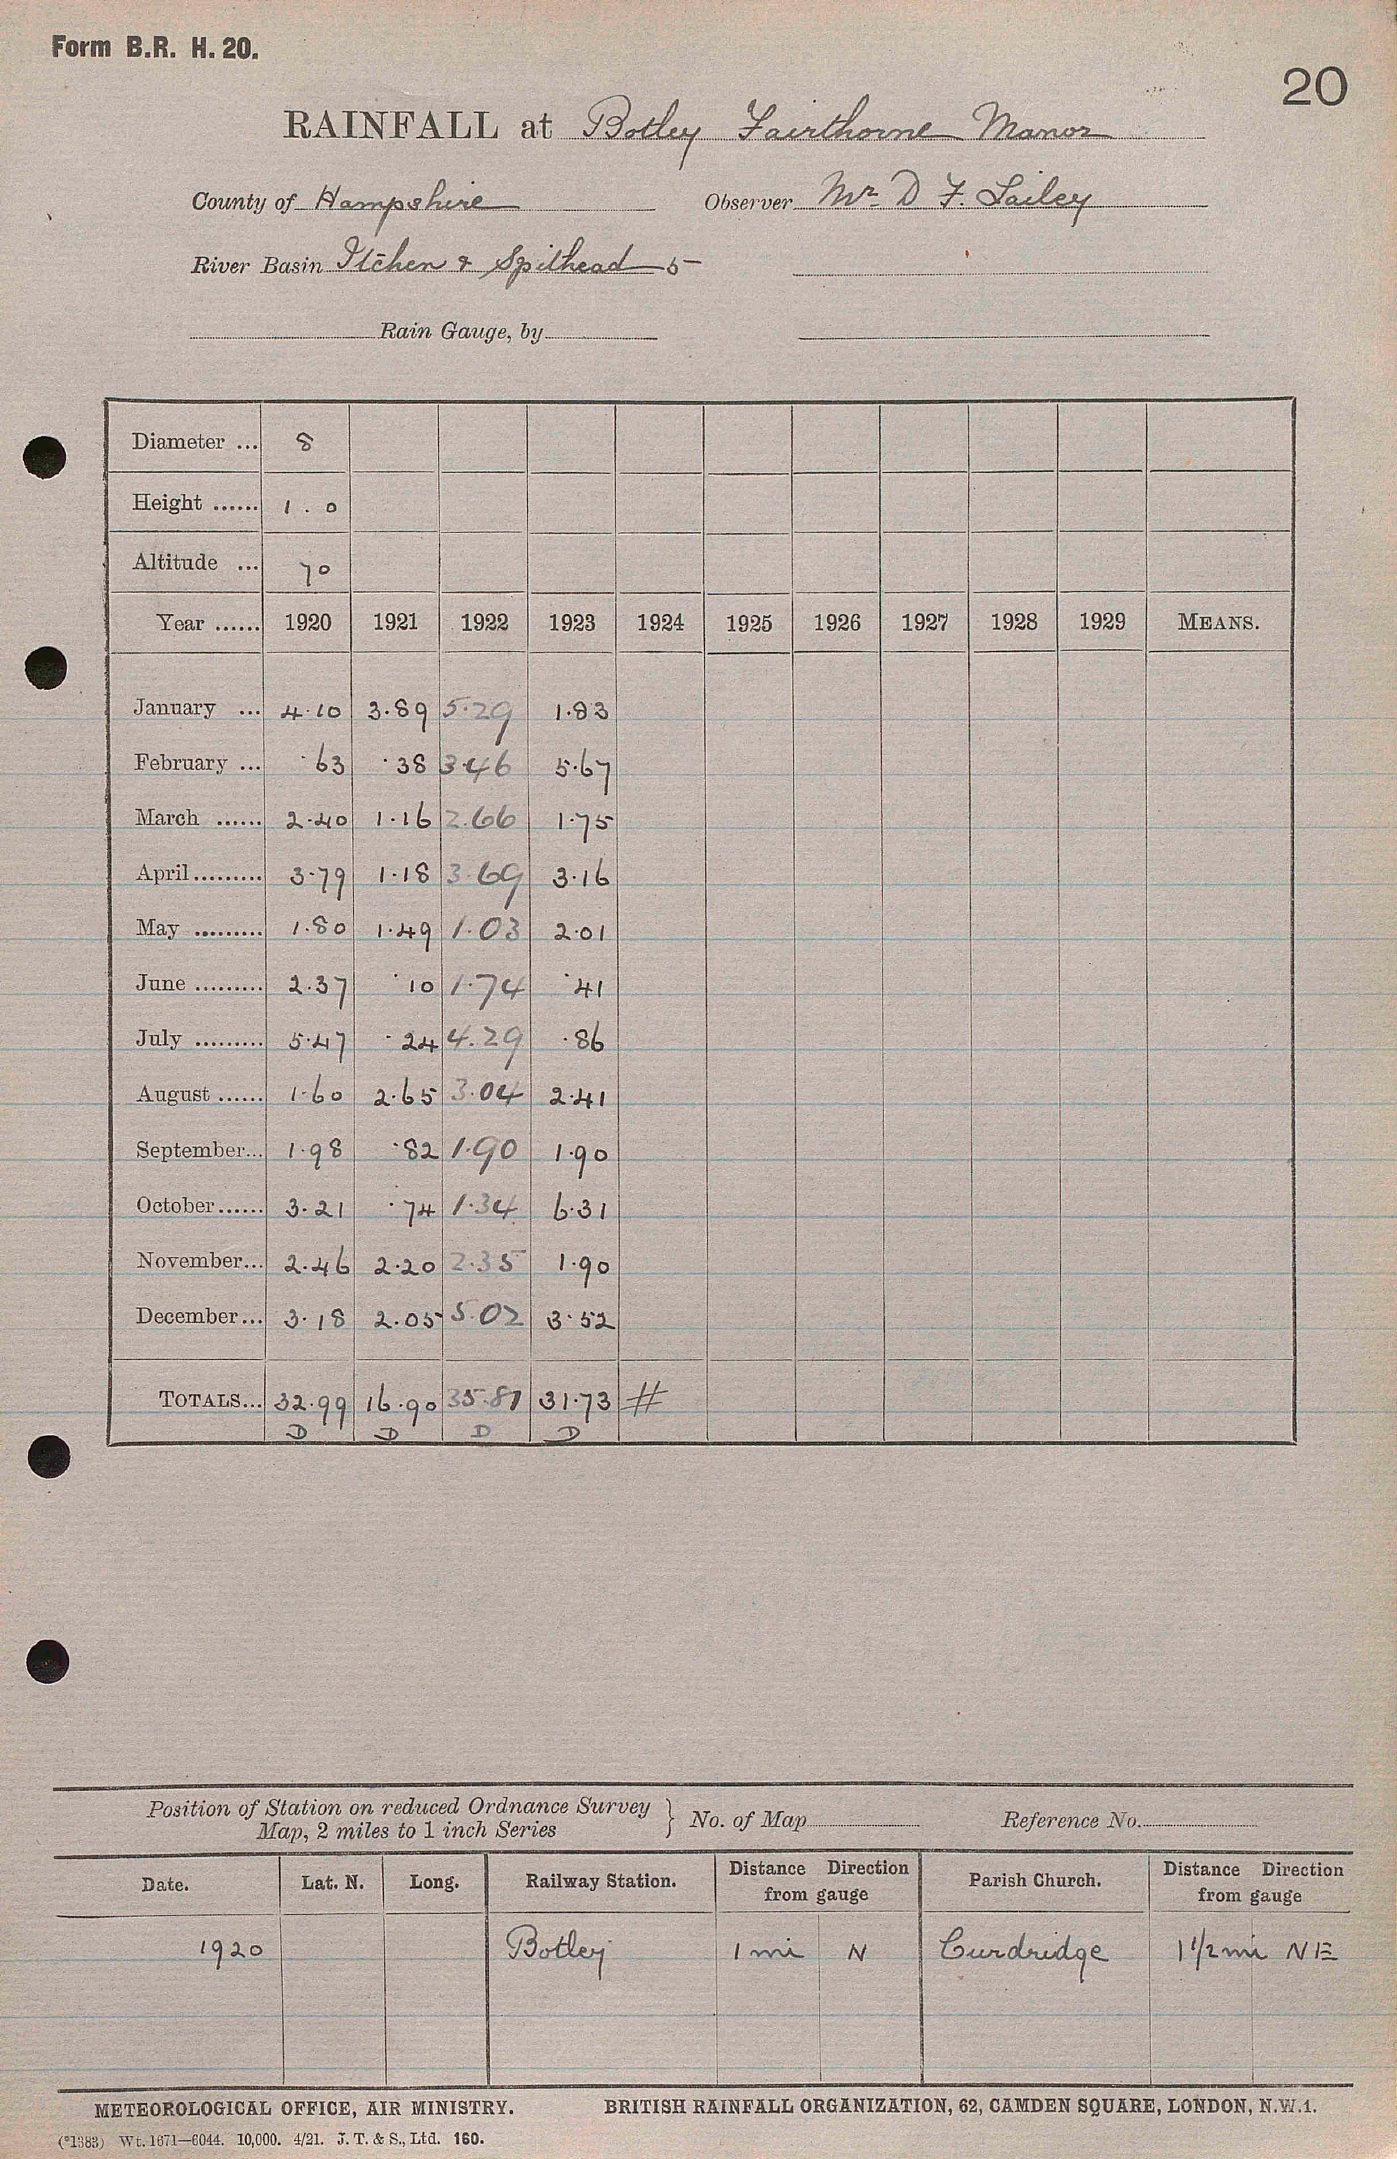 Form B.R. H. 20.
20
RAINFALL at Botley Fairthorne Manor
County of Hampshire Observer Mr. D F. Lailey
River Basin Itchen & Spithead 5
Rain Gauge, by
Diameter ... 8
Height ...... 1.0
Altitude ... 70
Year ...... 1920 1921 1922 1923 1924 1925 1926 1927 1928 1929 MEANS.
January ... 4.10 3.89 5.29 1.83
February ... .63 .38 3.46 5.67
March ...... 2.40 1.16 2.66 1.75
April......... 3.79 1.18 3.69 3.16
May ......... 1.80 1.49 1.03 2.01
June ......... 2.37 .10 1.74 .41
July ......... 5.47 .24 4.29 .86
August ...... 1.60 2.65 3.04 2.41
September... 1.98 .82 1.90 1.90
October...... 3.21 .74 1.34 6.31
November... 2.46 2.20 2.35 1.90
December... 3.18 2.05 5.02 3.52
TOTALS... 32.99 16.90 35.81 31.73 #
D D D D
Position of Station on reduced Ordnance Survey
Map, 2 miles to 1 inch Series } No. of Map Reference No.
Date. Lat. N. Long. Railway Station. Distance Direction from gauge Parish Church. Distance Direction from gauge
1920 Botley 1 mi N Curdridge 1 1/2 mi NE
METEOROLOGICAL OFFICE, AIR MINISTRY. BRITISH RAINFALL ORGANIZATION, 62, CAMDEN SQUARE, LONDON, N.W.1.
(*1383) Wt. 1671—6044. 10,000. 4/21. J. T. & S., Ltd. 160.